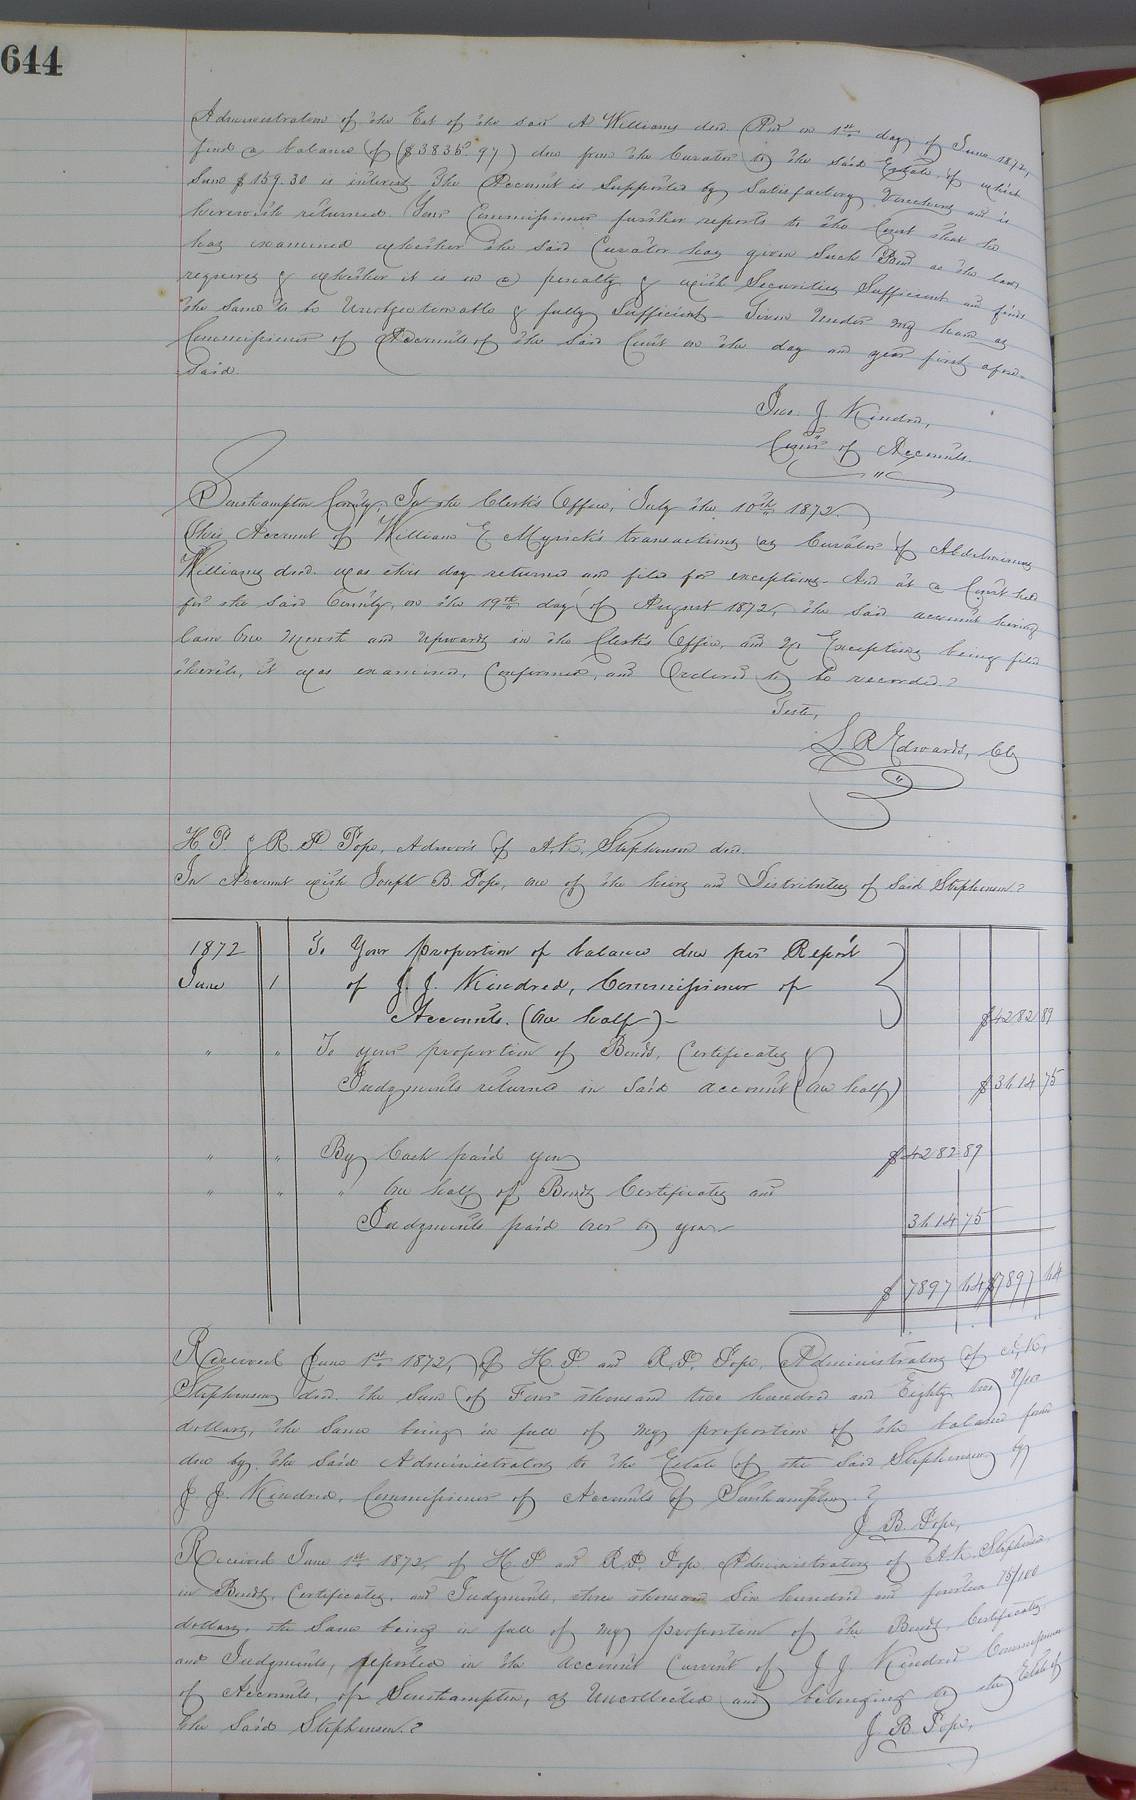 644
Administration of the Est of the said A Williams decd. And on 1st day of June 1872,
find a balance of ($3835.97) due from the Curator to the said Estate, of which
Sum $159.30 is interest. The Account is Supported by Satisfactory Vouchers and is
herewith returned. Your Commissioner further reports to the Court that he
has examined whether the said Curator has given Such Bond as the law
requires & whether it is in a penalty & with Securities Sufficient and finds
the same to be Unobjectionable & fully Sufficient. Given Under my hand as
Commissioner of Accounts of the said Court on the day and year first afore-
said.
Jno. J. Kindred,
Comr. of Accounts.
Southampton County, In the Clerk's Office, July the 10th 1872.
This Account of William E Myrick's transactions as Curator of
Williams decd. was this day returned and filed for exceptions. And at a Court held
for the said County, on the 19th day of August 1872, the said account having
lain One Month and Upwards in the Clerk's Office, and No Exceptions being filed
thereto, it was examined, Confirmed, and Ordered to be recorded.
Teste,
L R Edwards, Clk
H. P. & R. P. Pope, Admor's of A. K. Stephenson decd.
In Account with Joseph B. Pope, one of the heirs and Distributees of Said Stephenson.
1872 To Your proportion of balance due per Report
June 1 of J. J. Kindred, Commissioner of
Accounts. (One half) $4282 89
" " To your proportion of Bonds, Certificates
Judgments returned in Said account (One half) $3614 75
" " By Cash paid you $4282 89
" " " One half of Bonds Certificates and
Judgments paid over to you 3614 75
$7897 64 $7897 64
Received June 1st 1872, Of H. P. and R. P. Pope, Administrators of A. K.
Stephenson decd. the Sum of Four thousand two hundred and Eighty two 89/100
dollars, the Same being in full of my proportion of the balance found
due by the Said Administrators to the Estate of the Said Stephenson by
J. J. Kindred, Commissioner of Accounts of Southampton.
J. B. Pope,
Received June 1st 1872 of H P and R. P. Pope Administrators of A. K. Stephenson
in Bonds, Certificates, and Judgments, three thousand Six hundred and fourteen 75/100
dollars, the Same being in full of my proportion of the Bonds, Certificates
and Judgments, reported in the account Current of J J Kindred Commissioner
of Accounts, of Southampton, as Uncollected and belonging to the Estate of
the Said Stephenson.
J. B. Pope,